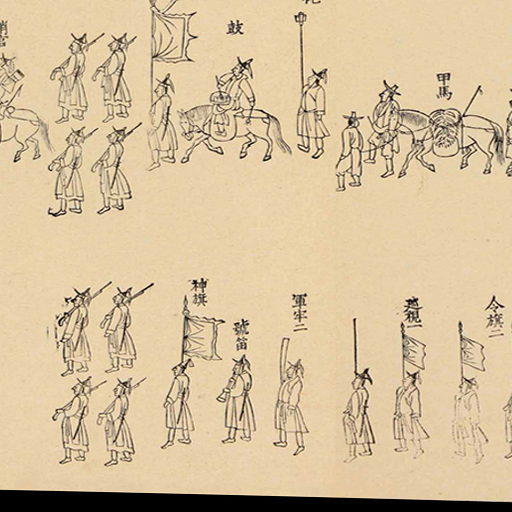 甲馬
鼓
令旗二
巡視一
軍牢二
號笛
神旗